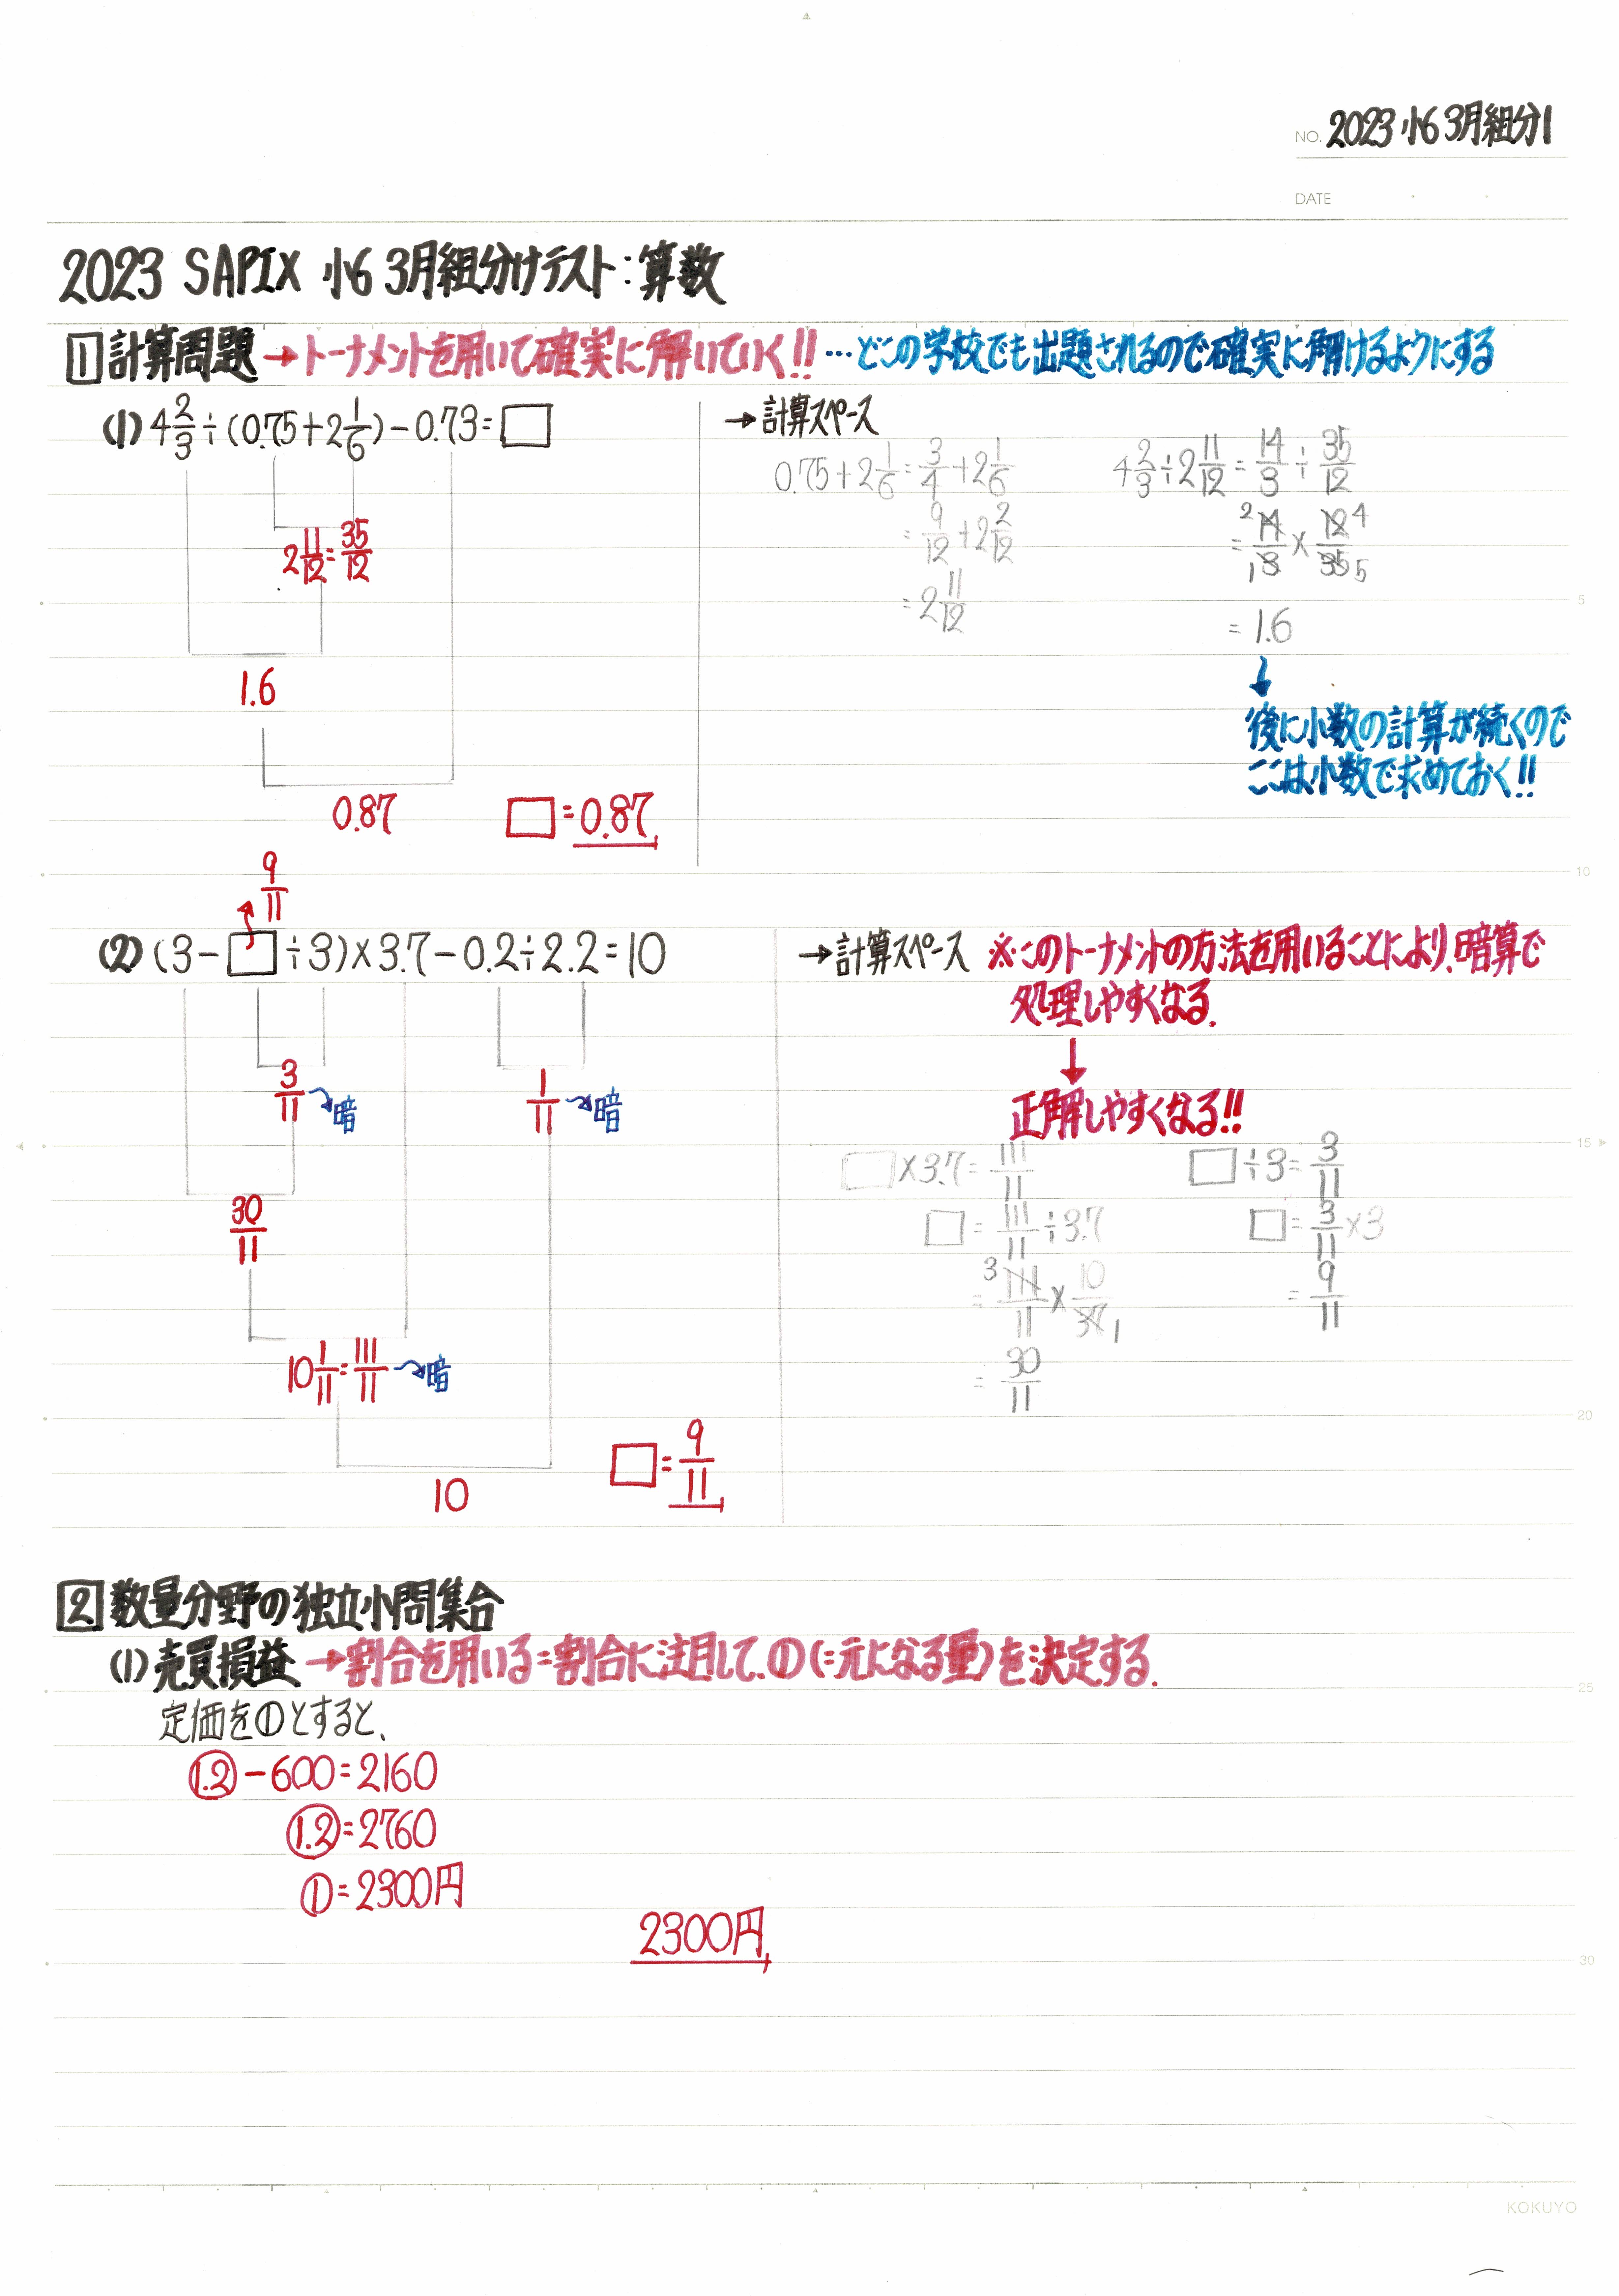 NO. 2023 小6 3月組分1
DATE
2023 SAPIX 小6 3月組分けテスト:算数
1 計算問題→トーナメントを用いて確実に解いていく!!…どこの学校でも出題されるので確実に解けるようにする
(1) 4 2/3÷(0.75+2 1/6)-0.73=□
→計算スペース
0.75+2 1/6=3/4+2 1/6
=9/12+2 2/12
=2 11/12
4 2/3÷2 11/12=14/3÷35/12
=14/3×12/35
2 4
1 5
=1.6
↓
後に小数の計算が続くので
ここは小数で求めておく!!
2 11/12=35/12
1.6
0.87
□=0.87
9/11
(2) (3-□÷3)×3.7-0.2÷2.2=10
→計算スペース ※このトーナメントの方法を用いることにより、暗算で
処理しやすくなる。
↓
正解しやすくなる!!
□×3.7=111/11
□=111/11÷3.7
=111/11×10/37
3
1
=30/11
□÷3=3/11
□=3/11×3
=9/11
3/11→暗
1/11→暗
30/11
10 1/11=111/11→暗
10
□=9/11
2 数量分野の独立小問集合
(1) 売買損益→割合を用いる=割合に注目して、①(=元になる量)を決定する。
定価を①とすると、
(1.2)-600=2160
(1.2)=2760
①=2300円
2300円
5
10
15
20
25
30
KOKUYO